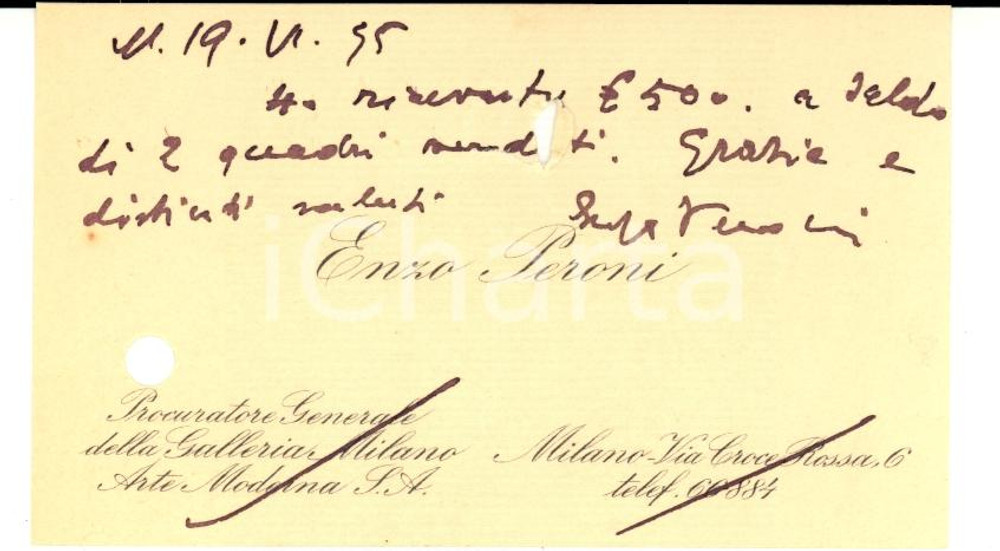 M. 19. VI. 35
Ho ricevuto £ 500. a saldo
di 2 quadri venduti. Grazie e
distinti saluti
Enzo Peroni
iCharta
Procuratore Generale
della Galleria Milano
Arte Moderna S.A.
Milano - Via Croce Rossa, 6
telef. 66884